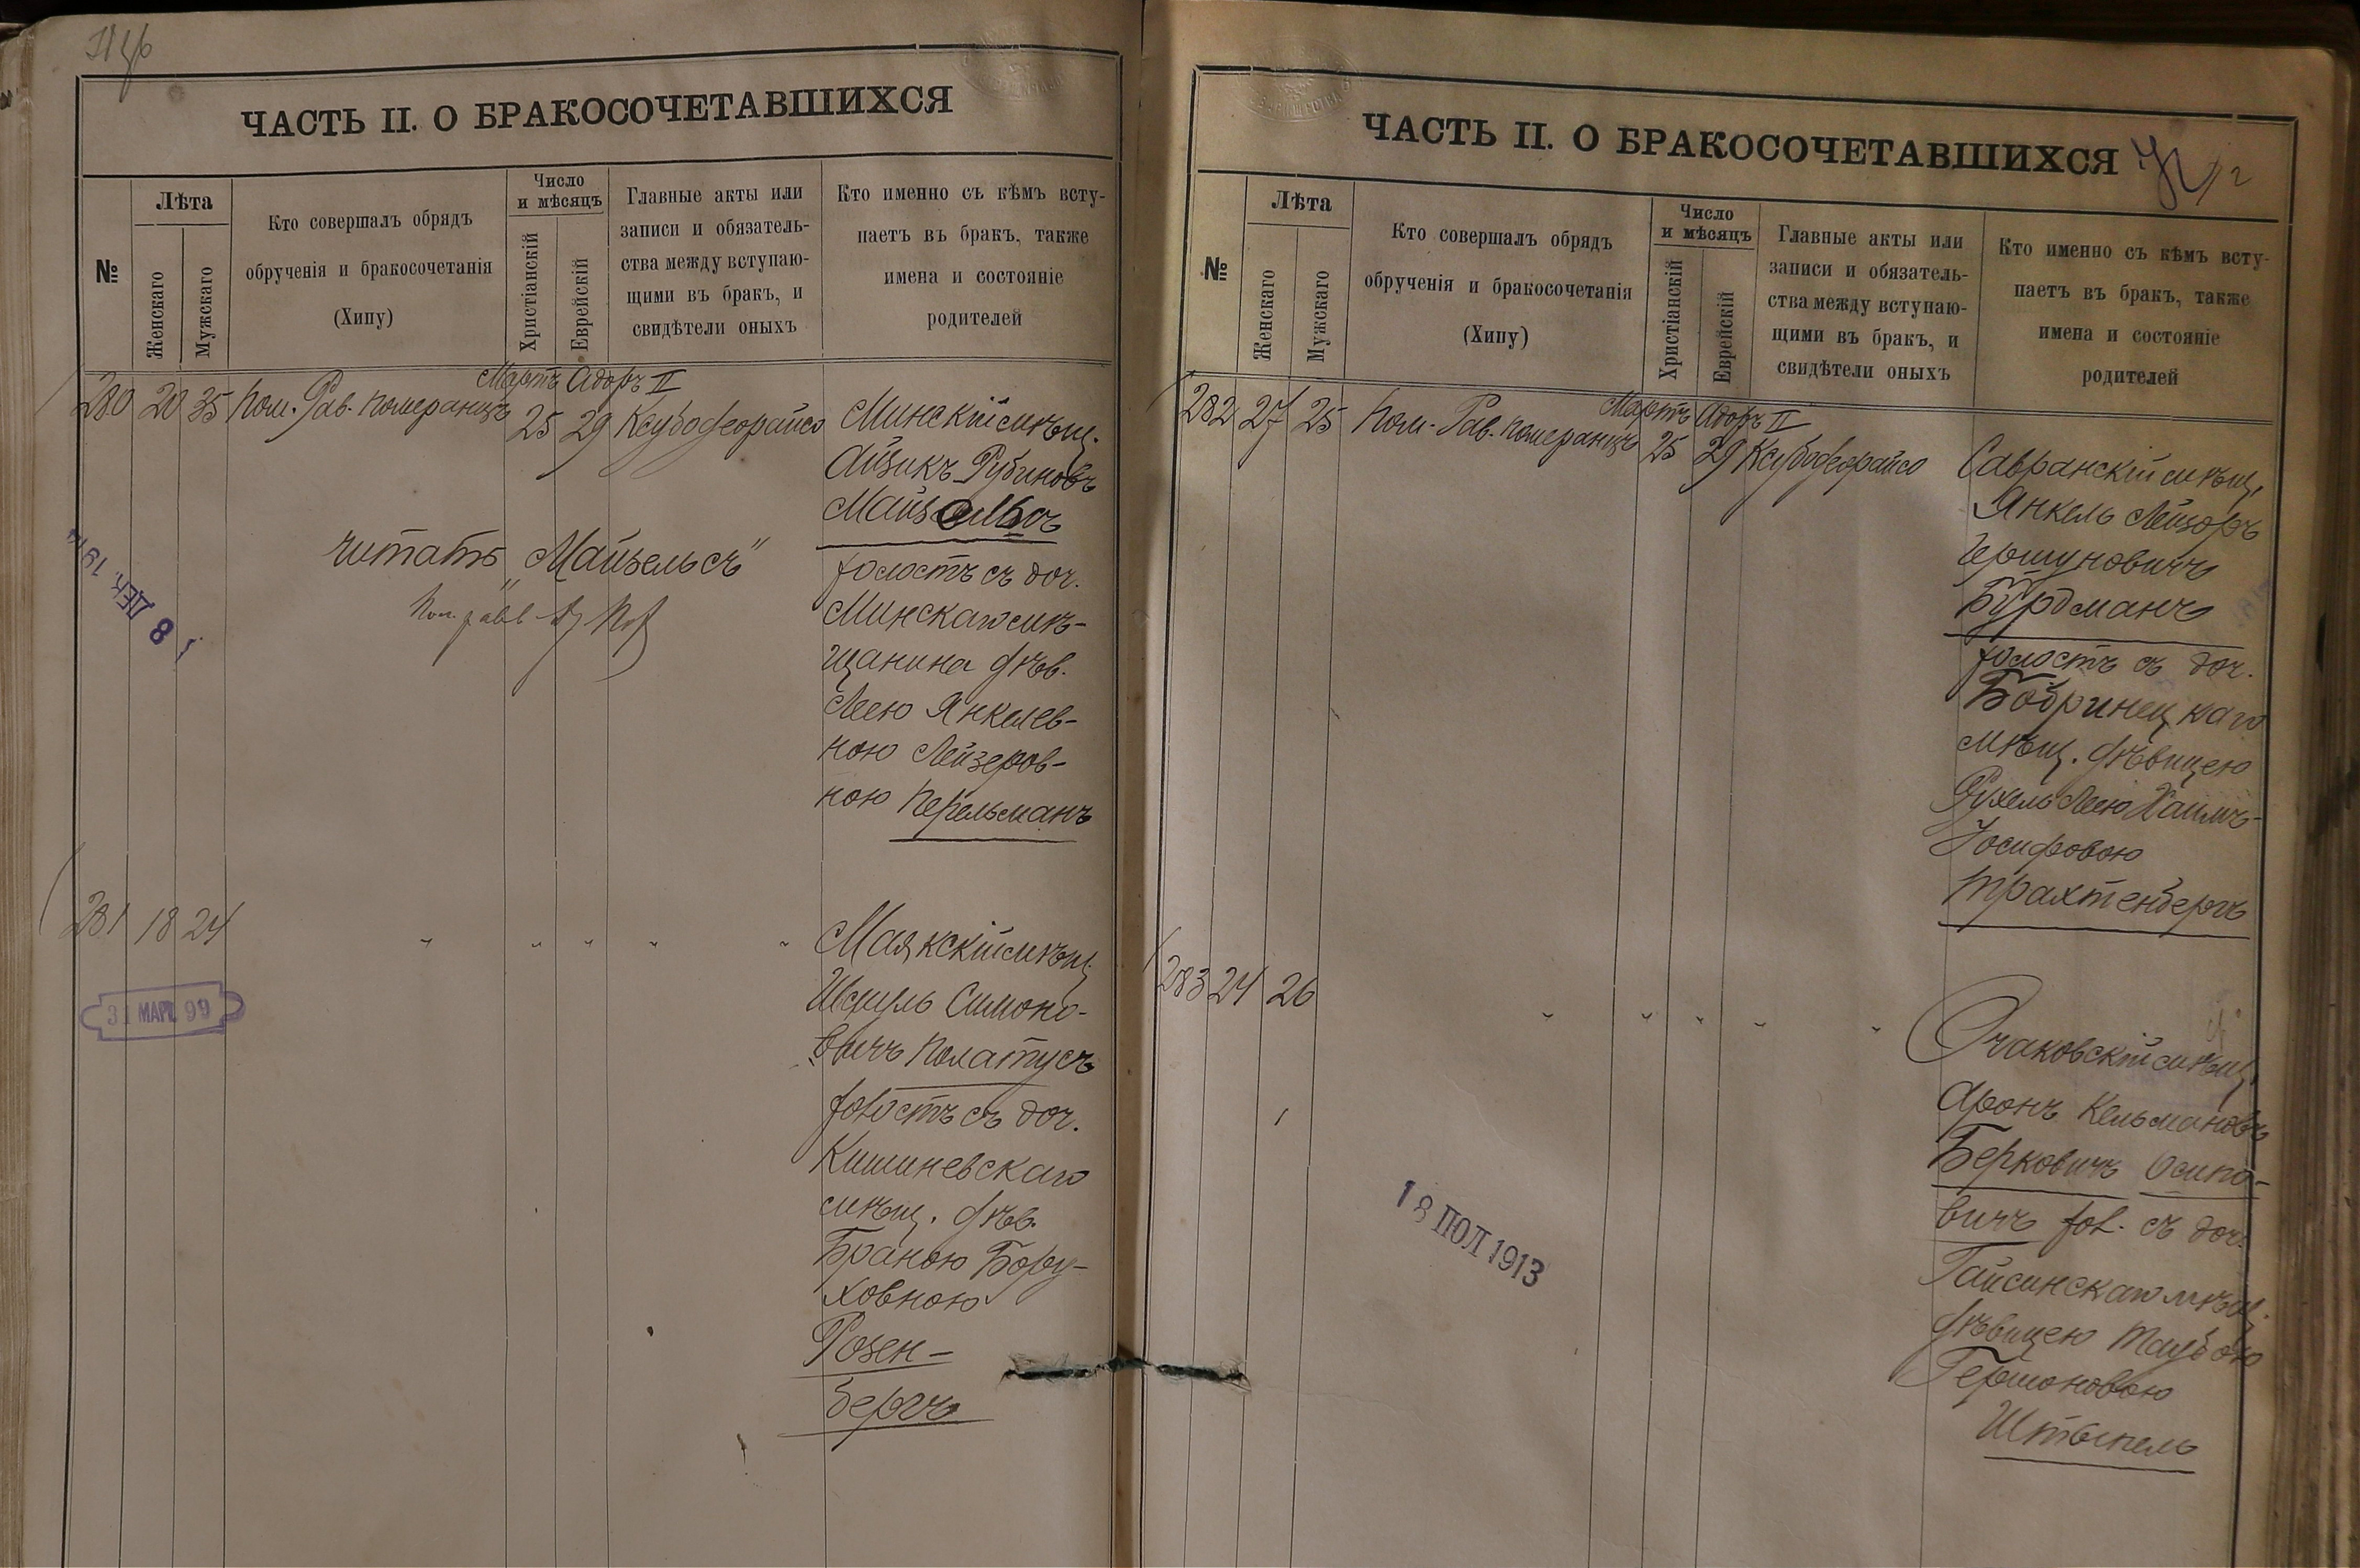 ЧАСТЬ II. О БРАКОСОЧЕТАВШИХСЯ
№
Лѣта
Женскаго
Мужскаго
Кто совершалъ обрядъ
обрученія и бракосочетанія
(Хипу)
Число
и мѣсяцъ
Христіанскій
Еврейскій
Главные акты или
записи и обязатель-
ства между вступаю-
щими въ бракъ, и
свидѣтели оныхъ
Кто именно съ кѣмъ всту-
паетъ въ бракъ, также
имена и состояніе
родителей
Мартъ Адоръ II
280 20 35 Пом. Рав. Померанцъ 25 29 Ксубодеорайсо
Минскій мѣщ.
Айзикъ Рубиновъ
холостъ съ доч.
Минскаго мѣ-
щанина дѣв.
Леею Янкелев-
ною Лейзеров-
ною Перельманъ
читать „Майзельсъ"
8 ДЕК. 191
281 18 24 " " " " "
Маякскій мѣщ.
Шмуль Симоно-
вичъ Полатусъ
холостъ съ доч.
Кишиневскаго
мѣщ. дѣв.
Браною Бору-
ховною
Розен-
бергъ
31 МАР. 99
ЧАСТЬ II. О БРАКОСОЧЕТАВШИХСЯ
№
Лѣта
Женскаго
Мужскаго
Кто совершалъ обрядъ
обрученія и бракосочетанія
(Хипу)
Число
и мѣсяцъ
Христіанскій
Еврейскій
Главные акты или
записи и обязатель-
ства между вступаю-
щими въ бракъ, и
свидѣтели оныхъ
Кто именно съ кѣмъ всту-
паетъ въ бракъ, также
имена и состояніе
родителей
Мартъ Адоръ II
282 27 25 Пом. Рав. Померанцъ 25 29 Ксубодеорайсо
Савранскій мѣщ.
Янкель Лейзоръ
Гершуновичъ
Бурдманъ
холостъ съ доч.
Бобринецкаго
мѣщ. дѣвицею
Рухель Леею Хаимъ-
Іосифовою
Трахтенбергъ
283 24 26 " " " " "
Очаковскій мѣщ.
Аронъ Кельмановъ
Берковичъ Осипо-
вичъ хол. съ доч.
Гайсинскаго мѣщ.
дѣвицею Таубою
Гершоновою
Штыпель
18 ПОЛ 1913